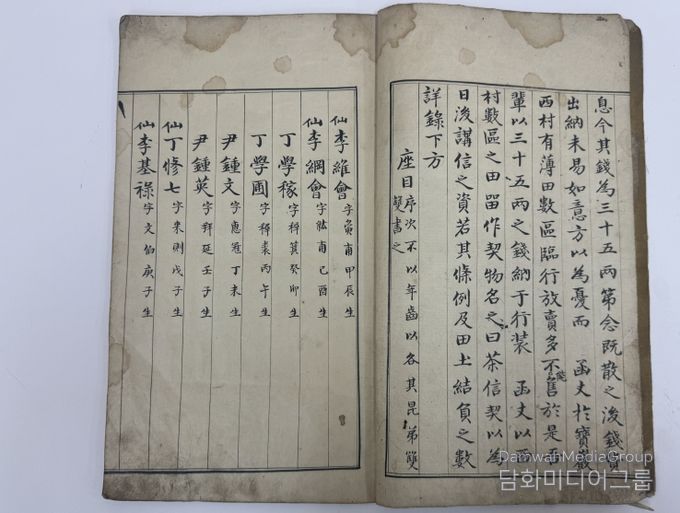 息今其錢為三十五兩第念既散之後錢
出納未易如意方以為憂而 函丈於寶巖
西村有薄田數區臨行放賣多不能售於是吾
輩以三十五兩之錢納于行裝 函丈以
村數區之田留作契物名之曰茶信契以為
日後講信之資若其條例及田土結負之數
詳錄下方
座目 序次不以年齒以各其昆弟雙
雙書之
仙李維會 字 甫甲辰生
仙李綱會 字紘甫己酉生
丁學稼 字稺箕癸卯生
丁學圃 字稺裘丙午生
尹鍾文 字惠冠丁未生
尹鍾英 字拜延壬子生
仙丁修七 字來則戊子生
仙李基祿 字文伯庚子生
DamwahMediaGroup
담화미디어그룹